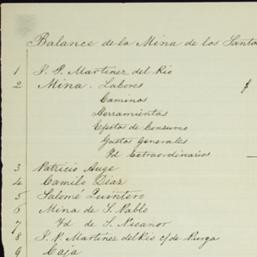 Balance de la Mina de los Santo
1 J. P. Martinez del Rio
2 Mina. Labores $
Caminos
Herramientas
Efectos de Consumo
Gastos Generales
Id Extraordinarios
3 Patricio Auge
4 Camilo Diaz
5 Salomé Quintero
6 Mina de S. Pablo
7 Id de S. Nicanor
8 J. P. Martinez del Rio c/ de Purga
9 Caja